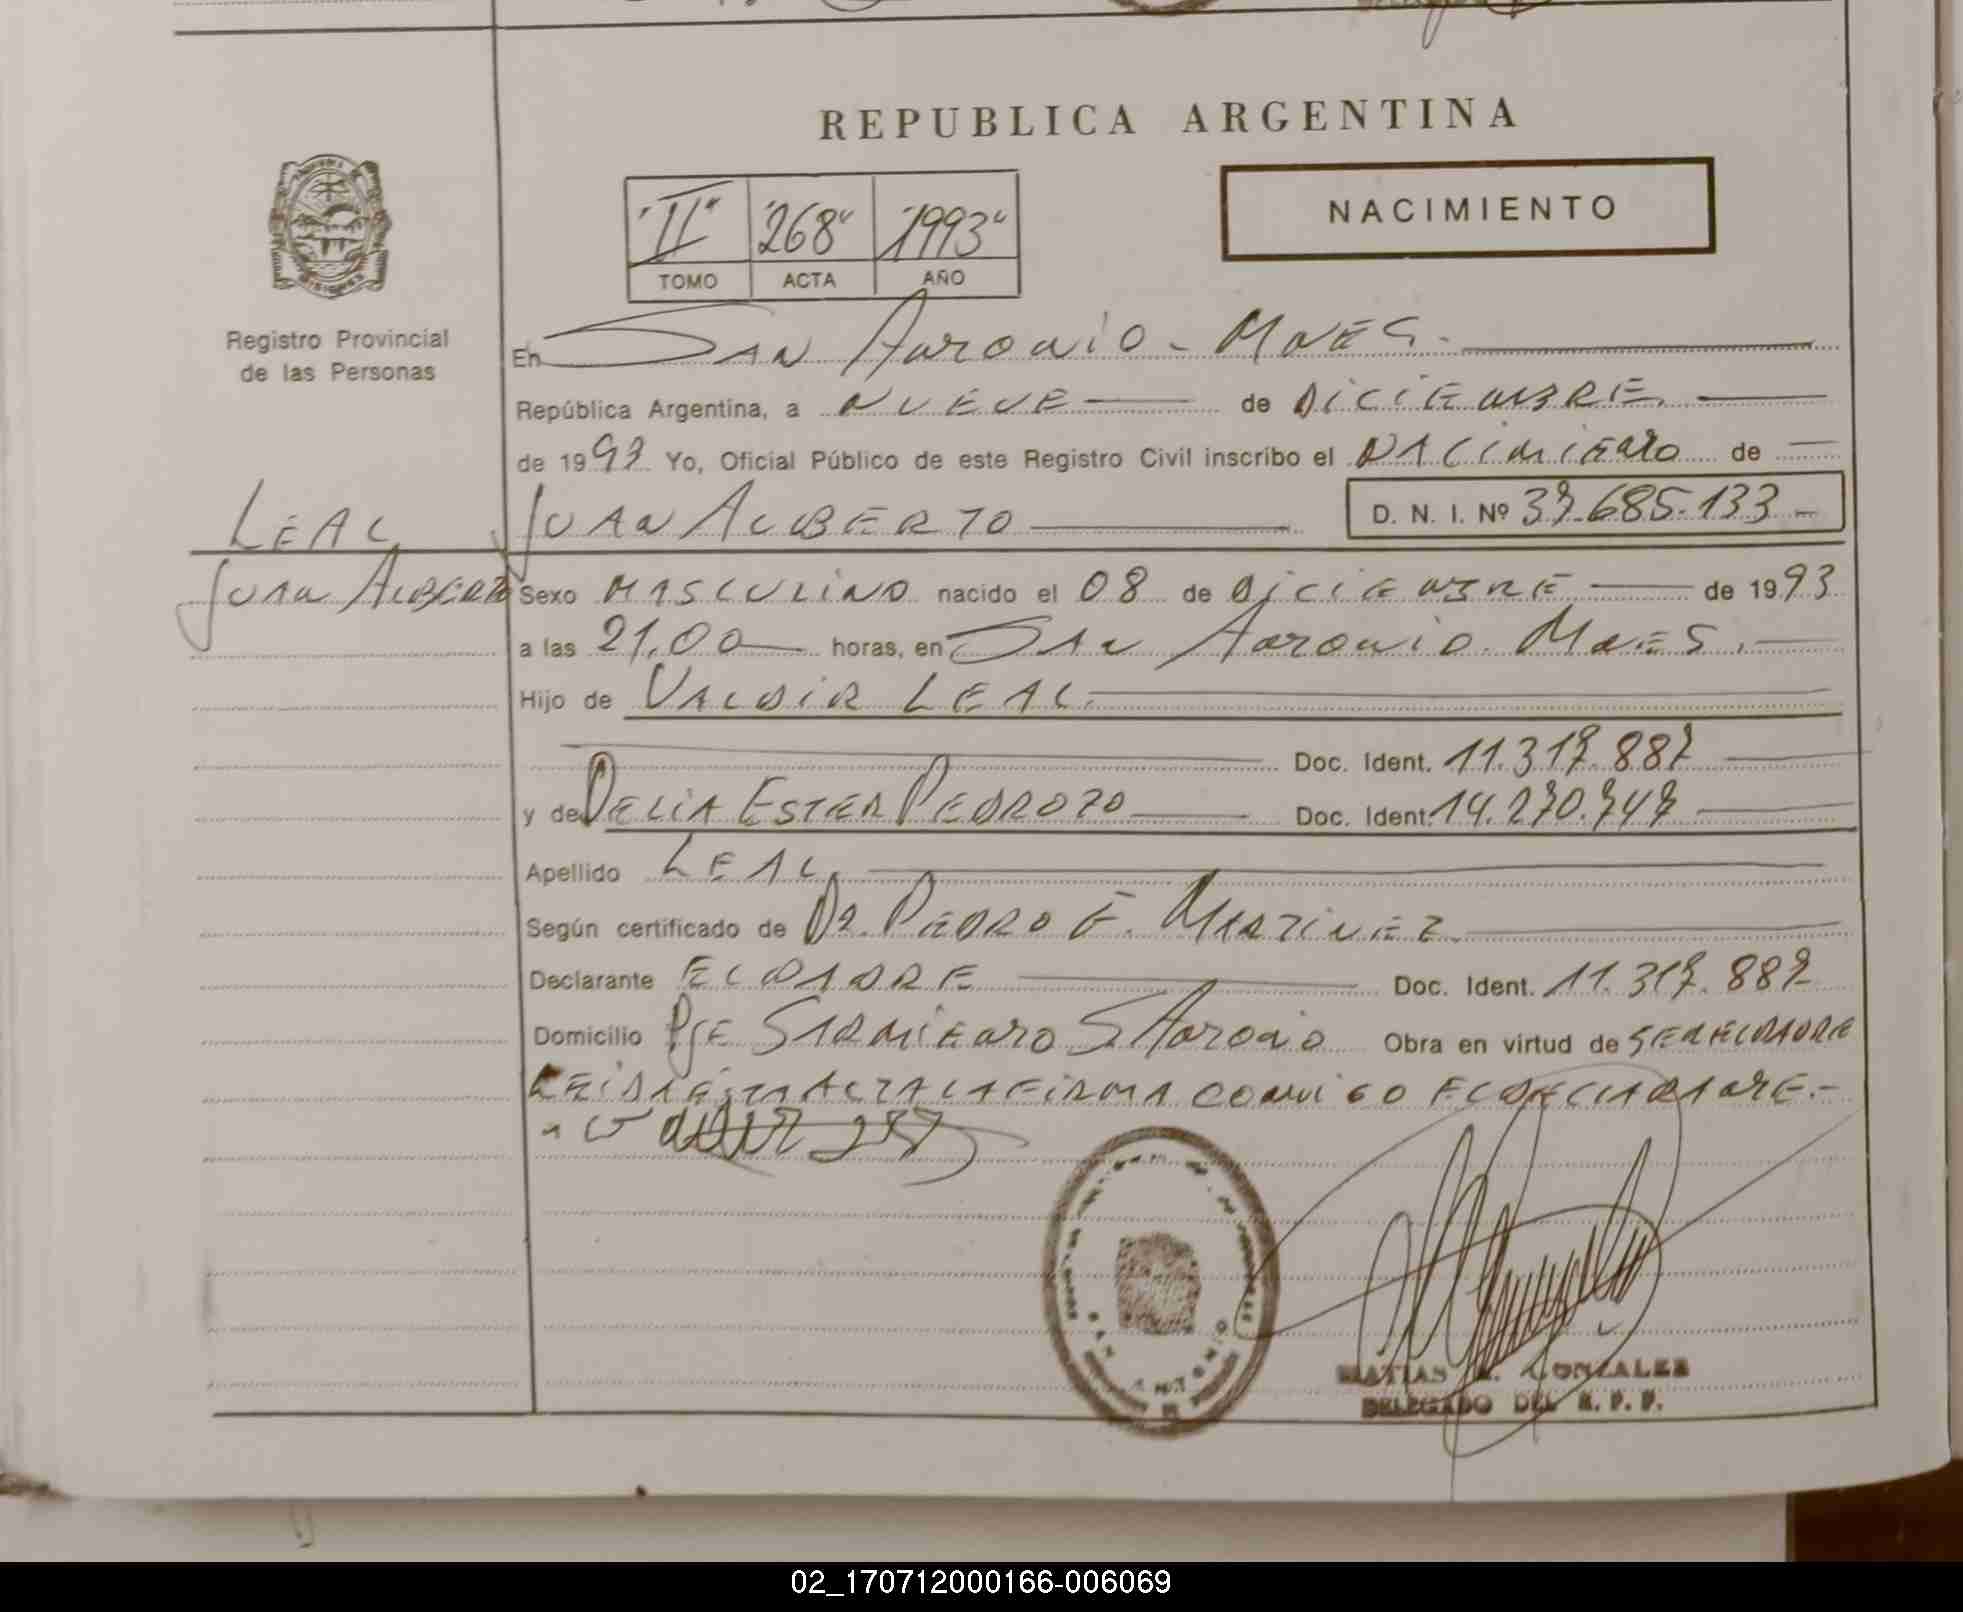 REPUBLICA ARGENTINA
"II" "268" "1993"
TOMO ACTA AÑO
NACIMIENTO
Registro Provincial
de las Personas
LEAL
JUAN ALBERTO
En SAN ANTONIO - MNES.
República Argentina, a NUEVE de DICIEMBRE
de 1993 Yo, Oficial Público de este Registro Civil inscribo el NACIMIENTO de
JUAN ALBERTO D. N. I. Nº 37.685.133
Sexo MASCULINO nacido el 08 de DICIEMBRE de 1993
a las 21,00 horas, en SAN ANTONIO. MNES.
Hijo de VALDIR LEAL
Doc. Ident. 11.317.887
y de DELIA ESTER PEDROZO Doc. Ident. 14.270.747
Apellido LEAL
Según certificado de Dr. PEDRO E. MARTINEZ
Declarante EL PADRE Doc. Ident. 11.317.887
Domicilio Pje SARMIENTO S ANTONIO Obra en virtud de SER EL PADRE
LEIDA ESTA ACTA LA FIRMA CONMIGO EL DECLARANTE.-
SAN ANTONIO
MATIAS GONZALEZ
DELEGADO DEL R. P. P.
02_170712000166-006069